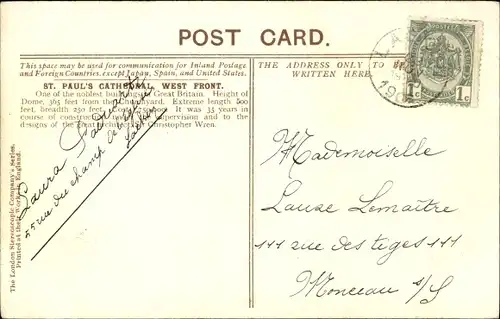 POST CARD.
This space may be used for communication for Inland Postage
and Foreign Countries, except Japan, Spain, and United States.
THE ADDRESS ONLY TO BE
WRITTEN HERE.
ST. PAUL'S CATHEDRAL, WEST FRONT.
One of the noblest buildings in Great Britain. Height of
Dome, 365 feet from the Churchyard. Extreme length 600
feet, breadth 250 feet. Cost £ It was 35 years in
course of construction under supervision and to the
designs of the great architect Christopher Wren.
Laura
55 rue du champ de
The London Stereoscopic Company's Series.
Printed at their Works in England.
1c 1c
190
Mademoiselle
Lause Lemaître
111 rue des tiges 111
Monceau s/S